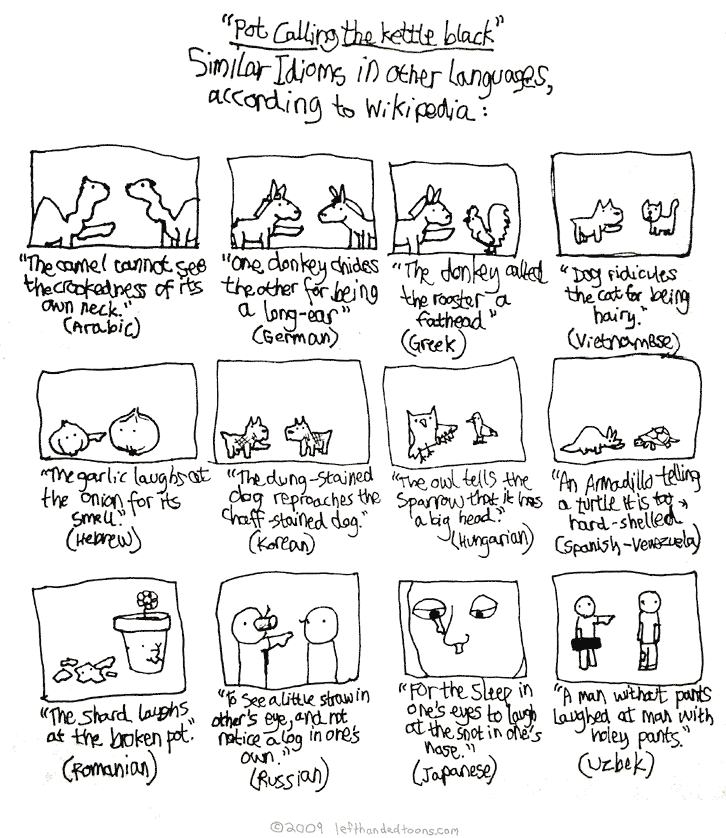 "Pot Calling the kettle black"
Similar Idioms in other languages,
according to Wikipedia:
"The camel cannot see
the crookedness of its
own neck."
(Arabic)
"One donkey chides
the other for being
a long-ear"
(German)
"The donkey called
the rooster a
fathead"
(Greek)
"Dog ridicules
the cat for being
hairy."
(Vietnamese)
"The garlic laughs at
the onion for its
smell."
(Hebrew)
"The dung-stained
dog reproaches the
chaff-stained dog."
(Korean)
"The owl tells the
Sparrow that it has
a big head."
(Hungarian)
"An Armadillo telling
a turtle it is too
hard-shelled"
(Spanish-Venezuela)
"The shard laughs
at the broken pot."
(Romanian)
"To see a little straw in
other's eye, and not
notice a log in one's
own."
(Russian)
"For the sleep in
one's eyes to laugh
at the snot in one's
nose."
(Japanese)
"A man without pants
laughed at man with
holey pants."
(Uzbek)
©2009 lefthandedtoons.com